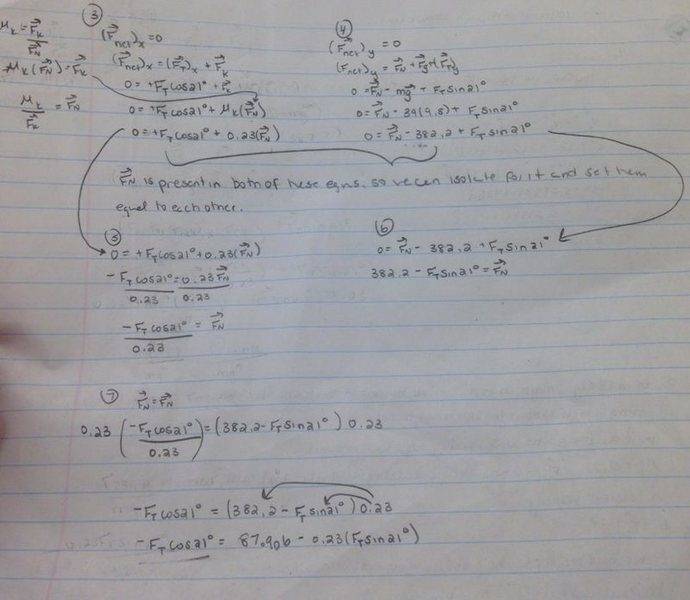 ③
(F⃗net)x = 0
(F⃗net)x = (F⃗T)x + F⃗K
0 = +FT cos21° + F⃗K
0 = +FT cos21° + μK(F⃗N)
0 = +FT cos21° + 0.23(F⃗N)
μK = F⃗K / F⃗N
μK(F⃗N) = F⃗K
μK / F⃗K = F⃗N
④
(F⃗net)y = 0
(F⃗net)y = F⃗N + F⃗g + (F⃗T)y
0 = F⃗N - mg⃗ + FT sin21°
0 = F⃗N - 39(9.8) + FT sin21°
0 = F⃗N - 382.2 + FT sin21°
F⃗N is present in both of these eqns. so we can isolate for it and set them
equal to each other.
⑤
0 = +FT cos21° + 0.23(F⃗N)
-FT cos21° / 0.23 = 0.23F⃗N / 0.23
-FT cos21° / 0.23 = F⃗N
⑥
0 = F⃗N - 382.2 + FT sin21°
382.2 - FT sin21° = F⃗N
⑦ F⃗N = F⃗N
0.23 (-FT cos21° / 0.23) = (382.2 - FT sin21°) 0.23
-FT cos21° = (382.2 - FT sin21°) 0.23
-FT cos21° = 87.906 - 0.23(FT sin21°)